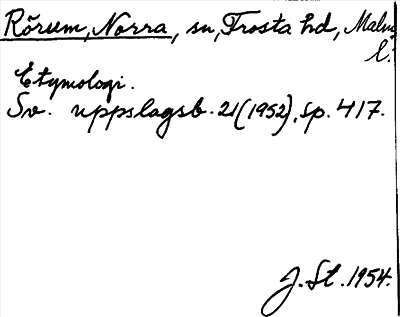 Rõrum, Norra, sn, Frosta hd, Malm.
l.
Etymologi.
Sv. uppslagsb. 21(1952), sp. 417.
J. St. 1954.